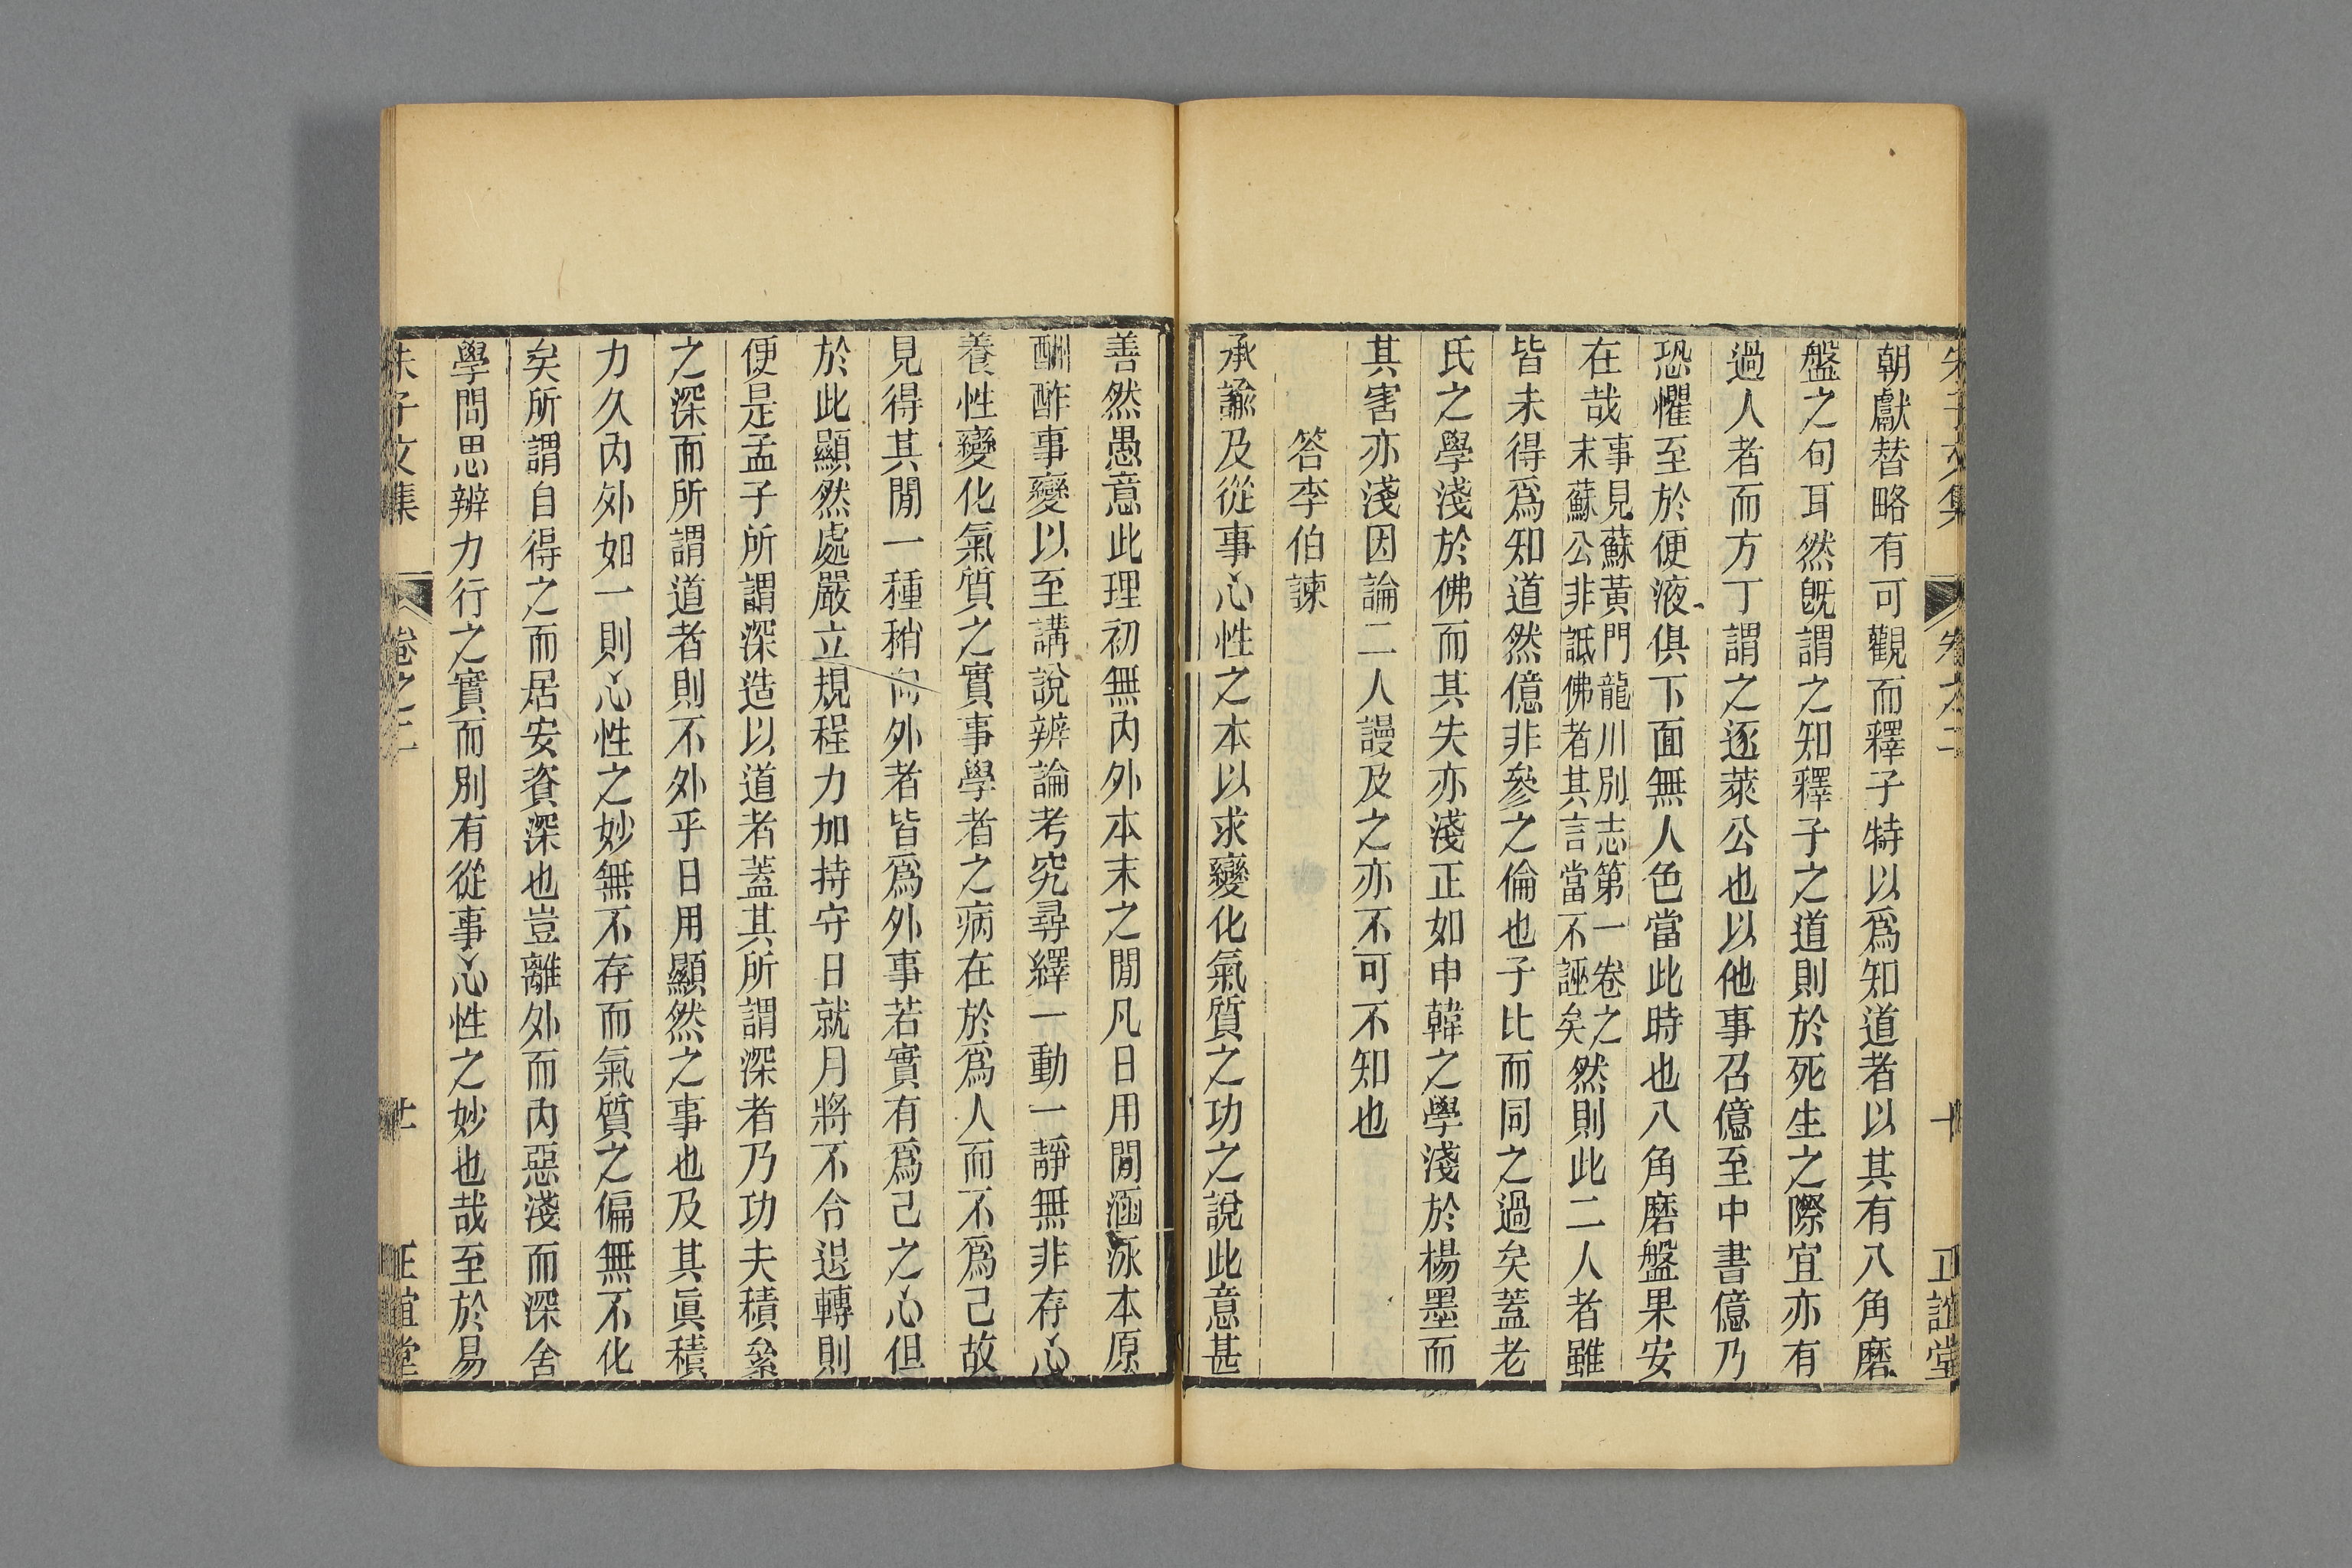 朱子文集 卷之二 十 正誼堂
朝獻替略有可觀而釋子特以爲知道者以其有八角磨
盤之句耳然旣謂之知釋子之道則於死生之際宜亦有
過人者而方丁謂之逐萊公也以他事召億至中書億乃
恐懼至於便液俱下面無人色當此時也八角磨盤果安
在哉事見蘇黃門龍川別志第一卷之末蘇公非詆佛者其言當不誣矣然則此二人者雖
皆未得爲知道然億非參之倫也子比而同之過矣蓋老
氏之學淺於佛而其失亦淺正如申韓之學淺於楊墨而
其害亦淺因論二人謾及之亦不可不知也
答李伯諫
承諭及從事心性之本以求變化氣質之功之說此意甚
善然愚意此理初無內外本末之閒凡日用閒涵泳本原
酬酢事變以至講說辨論考究尋繹一動一靜無非存心
養性變化氣質之實事學者之病在於爲人而不爲己故
見得其閒一種稍向外者皆爲外事若實有爲己之心但
於此顯然處嚴立規程力加持守日就月將不令退轉則
便是孟子所謂深造以道者蓋其所謂深者乃功夫積絫
之深而所謂道者則不外乎日用顯然之事也及其眞積
力久內外如一則心性之妙無不存而氣質之偏無不化
矣所謂自得之而居安資深也豈離外而內惡淺而深舍
學問思辨力行之實而別有從事心性之妙也哉至於易
朱子文集 卷之二 十 正誼堂